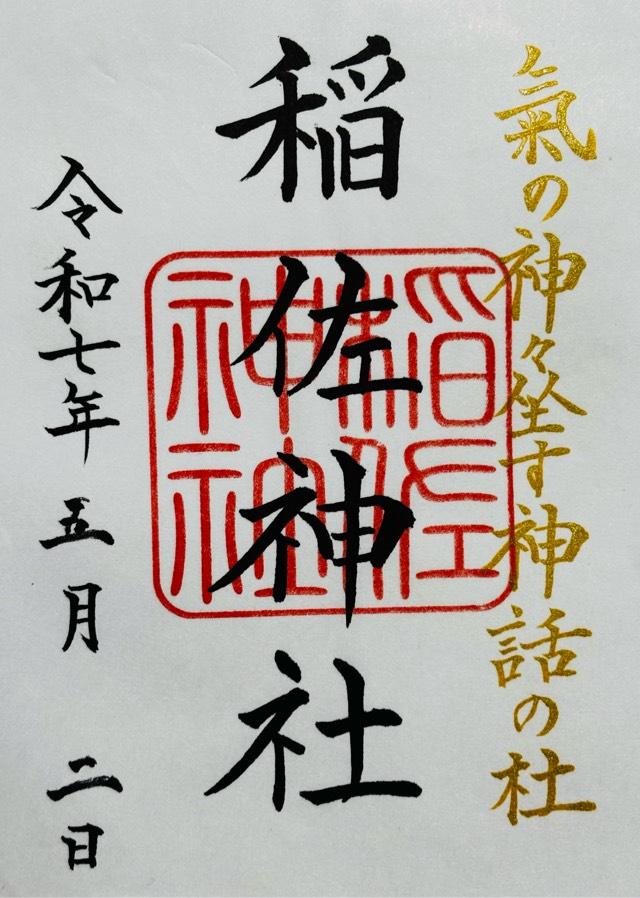 氣の神々坐す神話の杜
稲佐神社
稲佐神社
令和七年 五月 二日